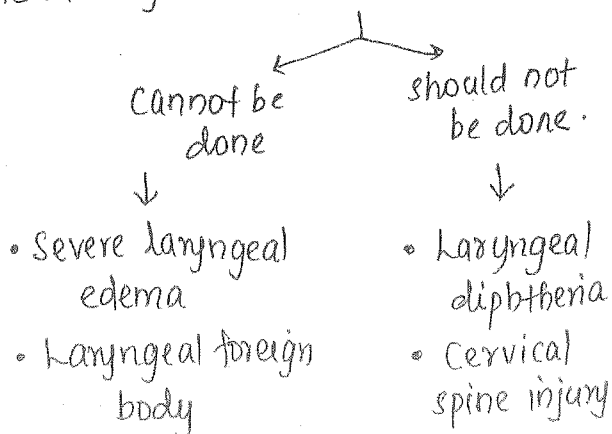 Cannot be
done
↓
• Severe laryngeal
edema
• Laryngeal foreign
body
should not
be done.
↓
• Laryngeal
diphtheria
• Cervical
spine injury